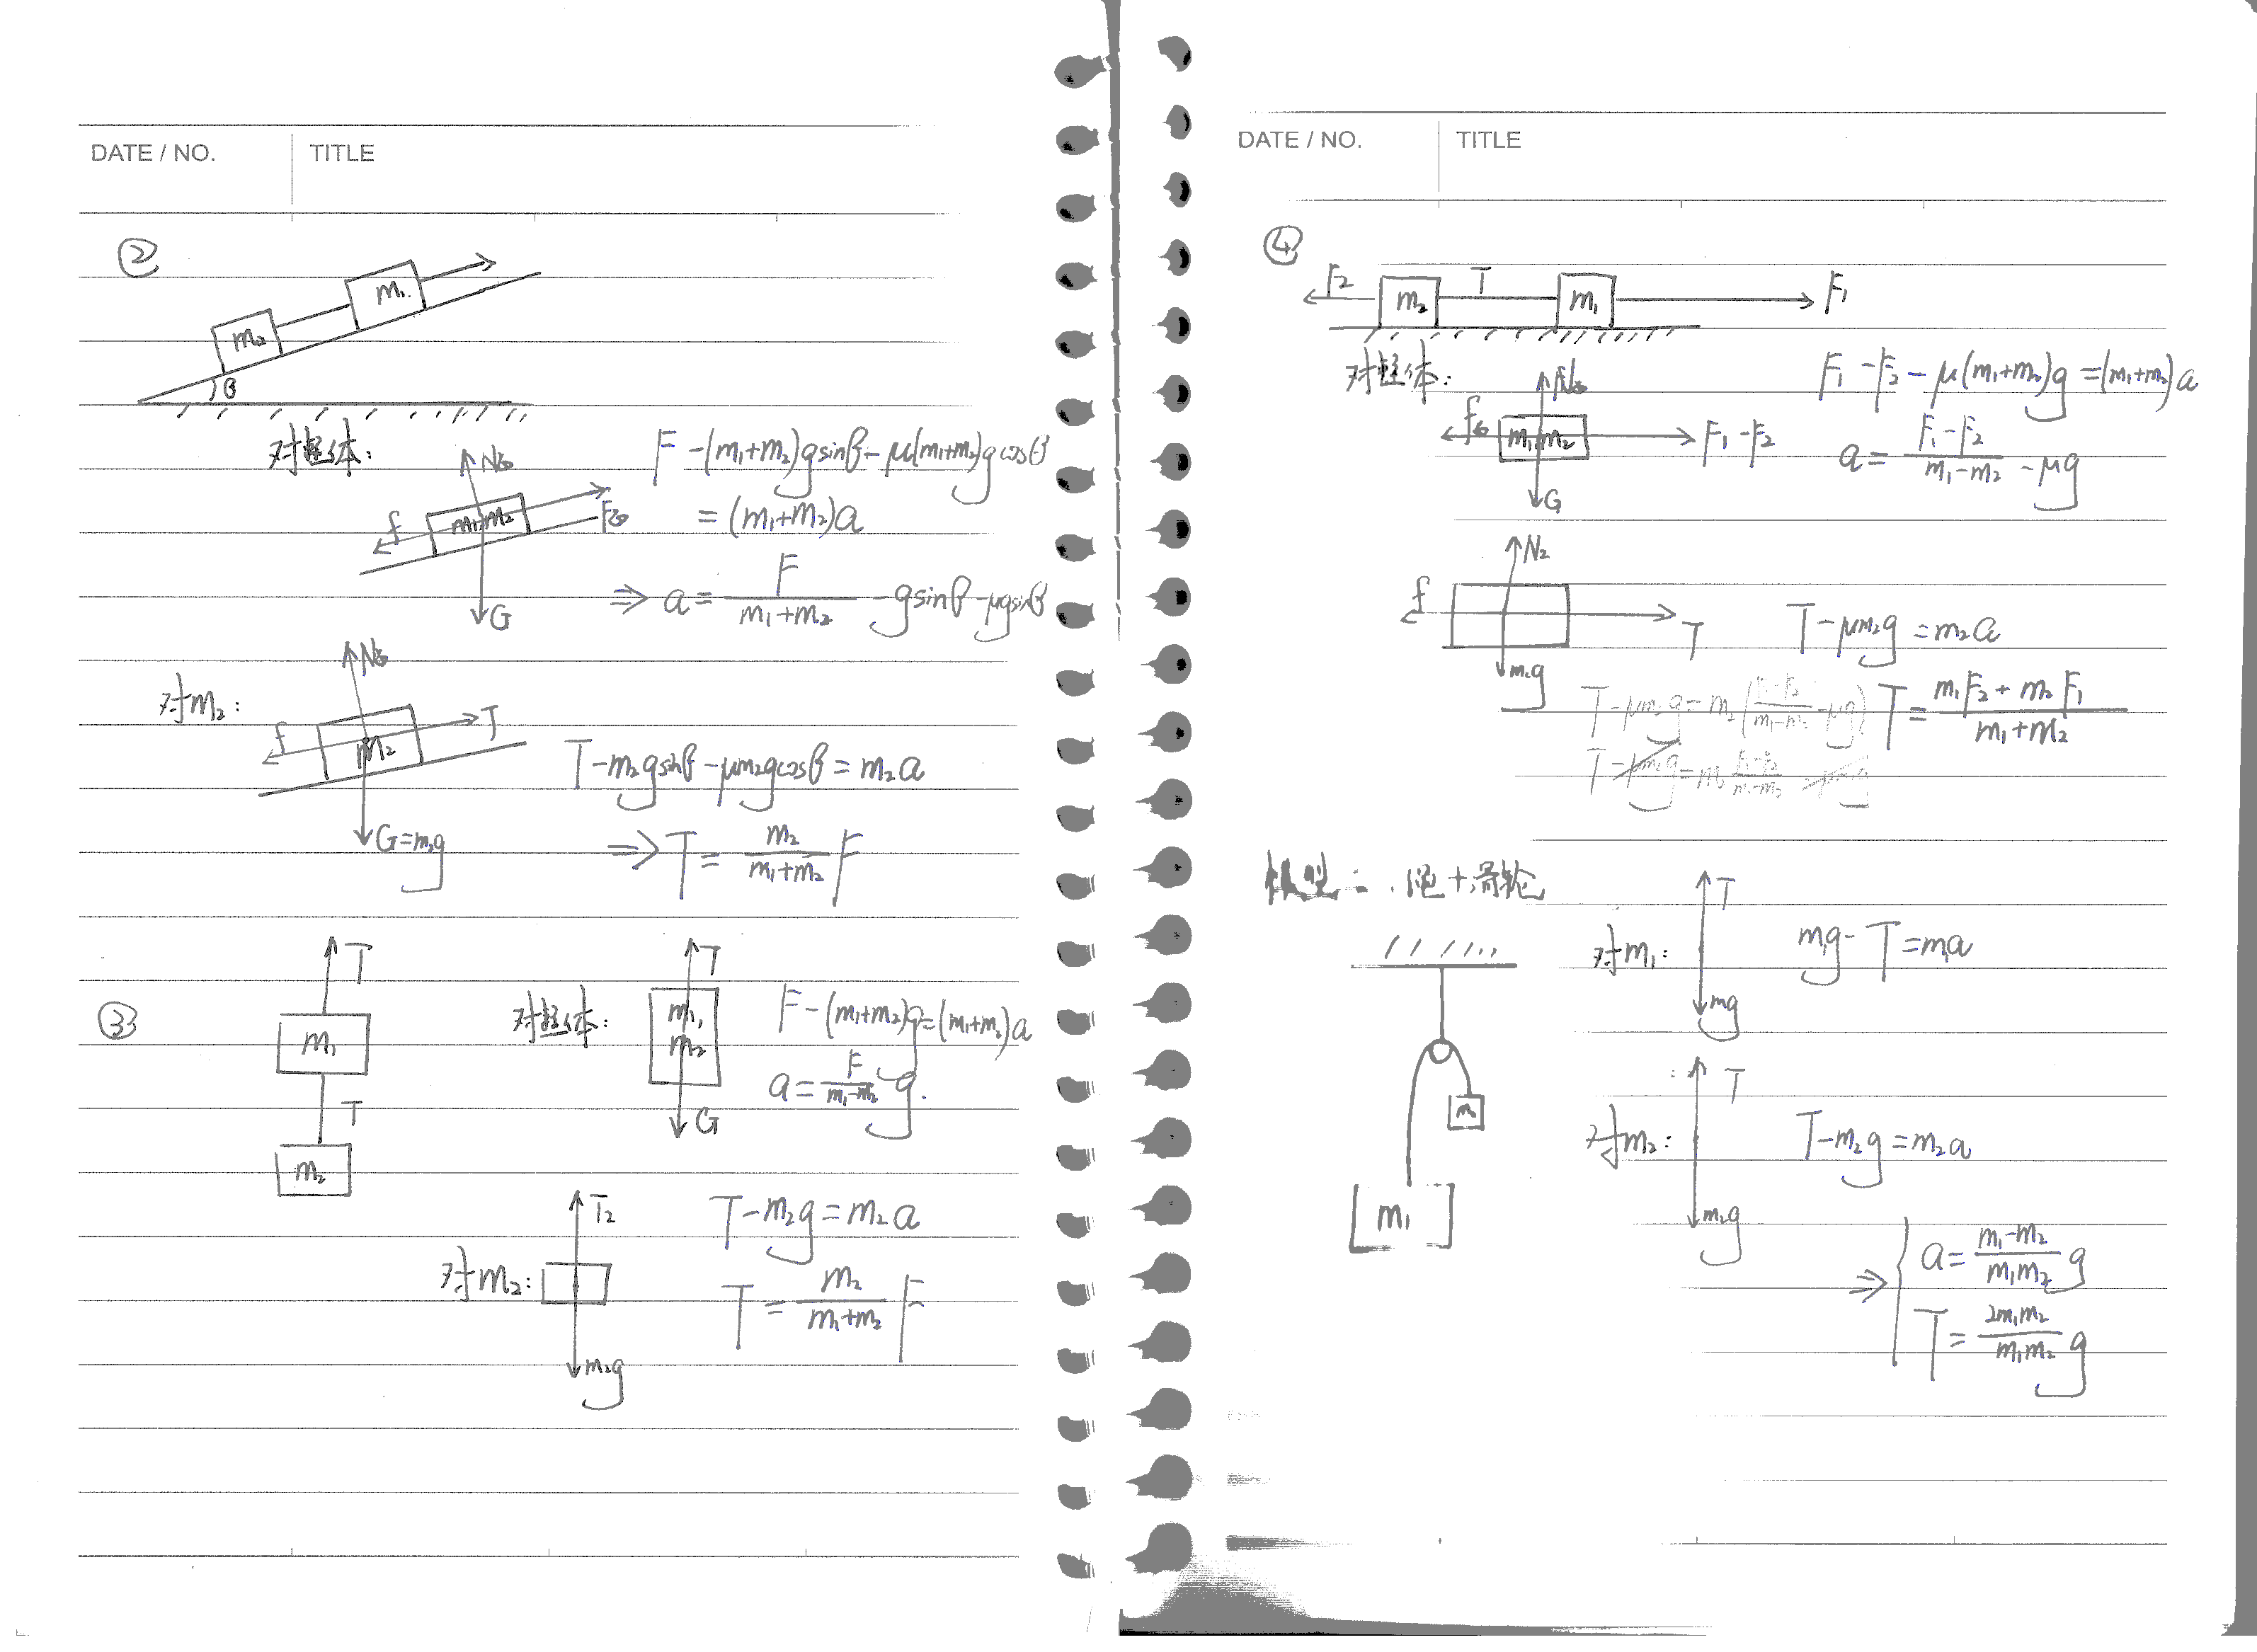 DATE / NO. TITLE
②
m₁
m₂
β
对整体:
N
F
f
m₁ m₂
G
F-(m₁+m₂)gsinβ-μ(m₁+m₂)gcosβ
=(m₁+m₂)a
⇒ a = F/(m₁+m₂) - gsinβ-μgsinβ
对m₂:
N
f
T
m₂
G=m₂g
T-m₂gsinβ-μm₂gcosβ=m₂a
⇒ T = m₂/(m₁+m₂) F
③
T
m₁
T
m₂
对整体:
T
m₁
m₂
G
F-(m₁+m₂)g=(m₁+m₂)a
a = F/(m₁-m₂) - g.
对m₂:
T₂
m₂g
T-m₂g=m₂a
T = m₂/(m₁+m₂) F
DATE / NO. TITLE
④
F₂ m₂ T m₁ F₁
对整体:
N
f
m₁ m₂
F₁-F₂
G
F₁-F₂-μ(m₁+m₂)g=(m₁+m₂)a
a = (F₁-F₂)/(m₁-m₂) -μg
N₂
f
T
m₂g
T-μm₂g=m₂a
T-μm₂g=m₂((F₁-F₂)/(m₁-m₂)-μg)
T = (m₁F₂+m₂F₁)/(m₁+m₂)
T-μm₂g=m₂(F₁-F₂)/(m₁-m₂)-μm₂g
模型二:绳+滑轮
m
m₁
对m₁:
T
mg
m₁g-T=m₁a
对m₂:
T
m₂g
T-m₂g=m₂a
⇒ { a = (m₁-m₂)/(m₁m₂) g
T = 2m₁m₂/(m₁m₂) g